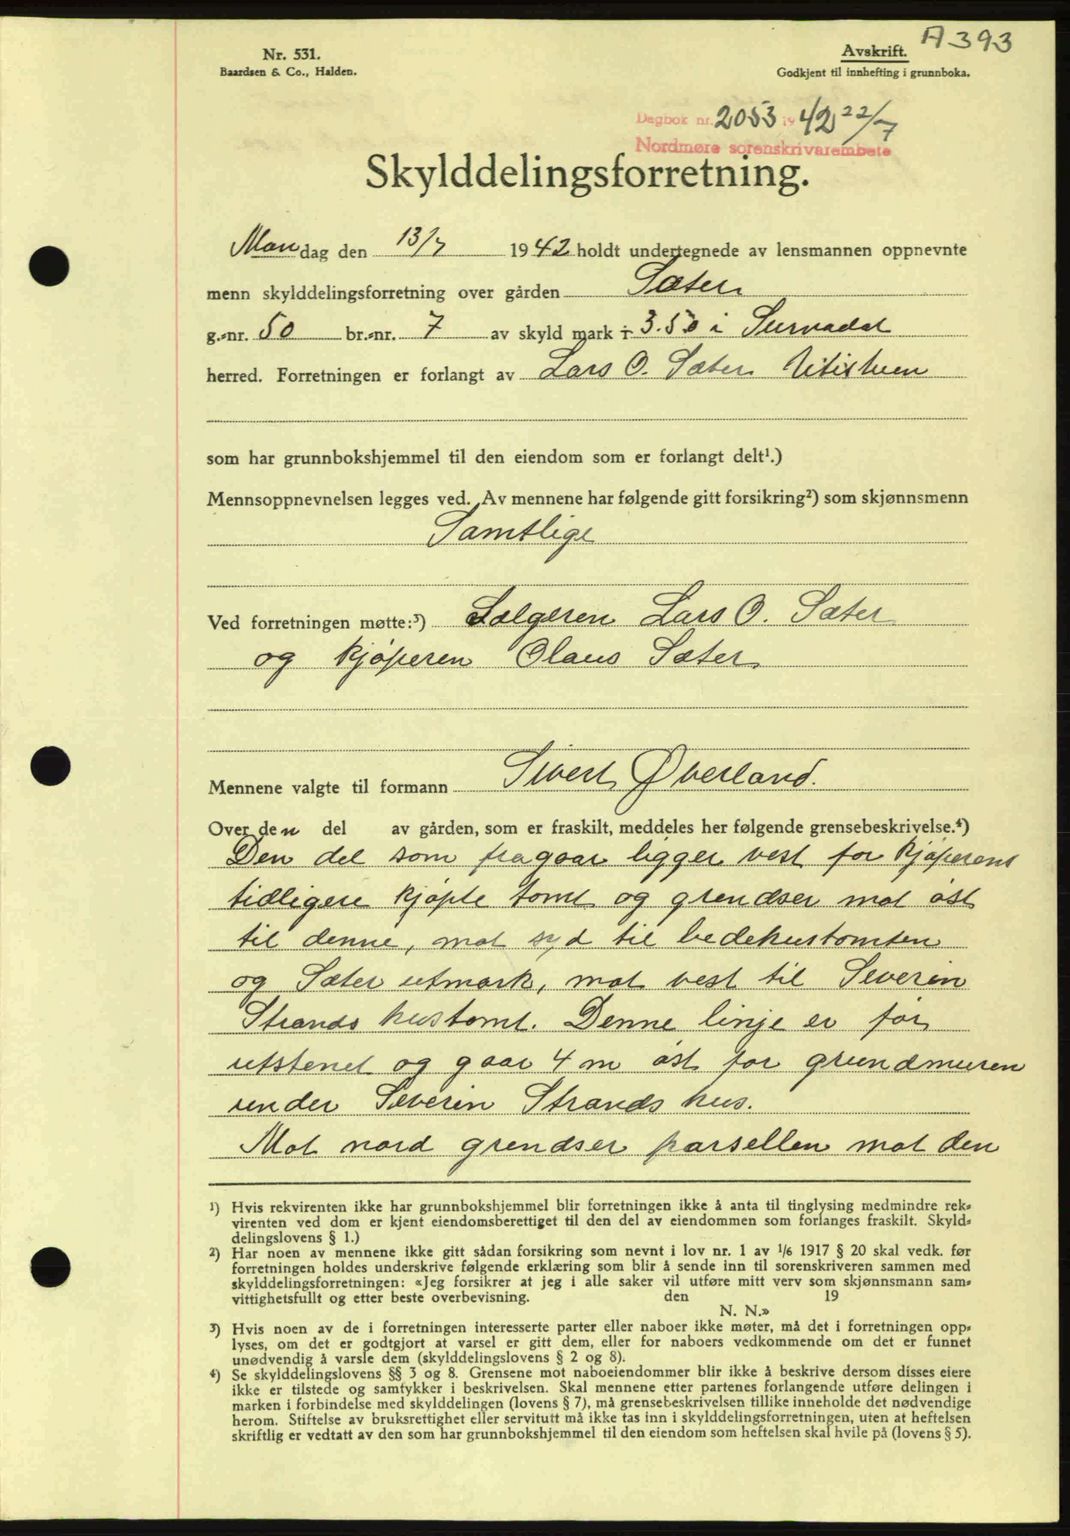 A 393
Nr. 531.
Baardsen & Co., Halden.
Avskrift.
Godkjent til innhefting i grunnboka.
Dagbok nr. 2053 1942 22/7
Nordmøre sorenskrivarembete
Skylddelingsforretning.
Mandag den 13/7 1942 holdt undertegnede av lensmannen oppnevnte
menn skylddelingsforretning over gården Sæter
g.-nr. 50 br.-nr. 7 av skyld mark 3.50 i Surnadal
herred. Forretningen er forlangt av Lars O. Sæter
som har grunnbokshjemmel til den eiendom som er forlangt delt¹.)
Mennsoppnevnelsen legges ved. Av mennene har følgende gitt forsikring²) som skjønnsmenn
Samtlige
Ved forretningen møtte:³) Sælgeren Lars O. Sæter
og kjøperen Olaus Sæter
Mennene valgte til formann Sivert Øverland.
Over den del av gården, som er fraskilt, meddeles her følgende grensebeskrivelse.⁴)
Den del som fragaar ligger vest for kjøperens
tidligere kjøpte tomt og grendser mot øst
til denne, mot syd til bedehustomten
og Sæter utmark, mot vest til Severin
Strands hustomt. Denne linje er før
utstenet og gaar 4 m øst for grundmuren
under Severin Strands hus.
Mot nord grendser parsellen mot den
¹) Hvis rekvirenten ikke har grunnbokshjemmel blir forretningen ikke å anta til tinglysing medmindre rek-
virenten ved dom er kjent eiendomsberettiget til den del av eiendommen som forlanges fraskilt. Skyld-
delingslovens § 1.)
²) Har noen av mennene ikke gitt sådan forsikring som nevnt i lov nr. 1 av 1/6 1917 § 20 skal vedk. før
forretningen holdes underskrive følgende erklæring som blir å sende inn til sorenskriveren sammen med
skylddelingsforretningen: «Jeg forsikrer at jeg i alle saker vil utføre mitt verv som skjønnsmann sam-
vittighetsfullt og etter beste overbevisning. den 19
N. N.»
³) Hvis noen av de i forretningen interesserte parter eller naboer ikke møter, må det i forretningen opp-
lyses, om det er godtgjort at varsel er gitt dem, eller for naboers vedkommende om det er funnet
unødvendig å varsle dem (skylddelingslovens § 2 og 8).
⁴) Se skylddelingslovens §§ 3 og 8. Grensene mot naboeiendommer blir ikke å beskrive dersom disses eiere
ikke er tilstede og samtykker i beskrivelsen. Skal mennene etter partenes forlangende utføre delingen i
marken i forbindelse med skylddelingen (lovens § 7), må grensebeskrivelsen tillike inneholde det nødvendige
herom. Stiftelse av bruksrettighet eller servitutt må ikke tas inn i skylddelingsforretningen, uten at heftelsen
skriftlig er vedtatt av den som har grunnbokshjemmel til den eiendom som heftelsen skal hvile på (lovens § 5).